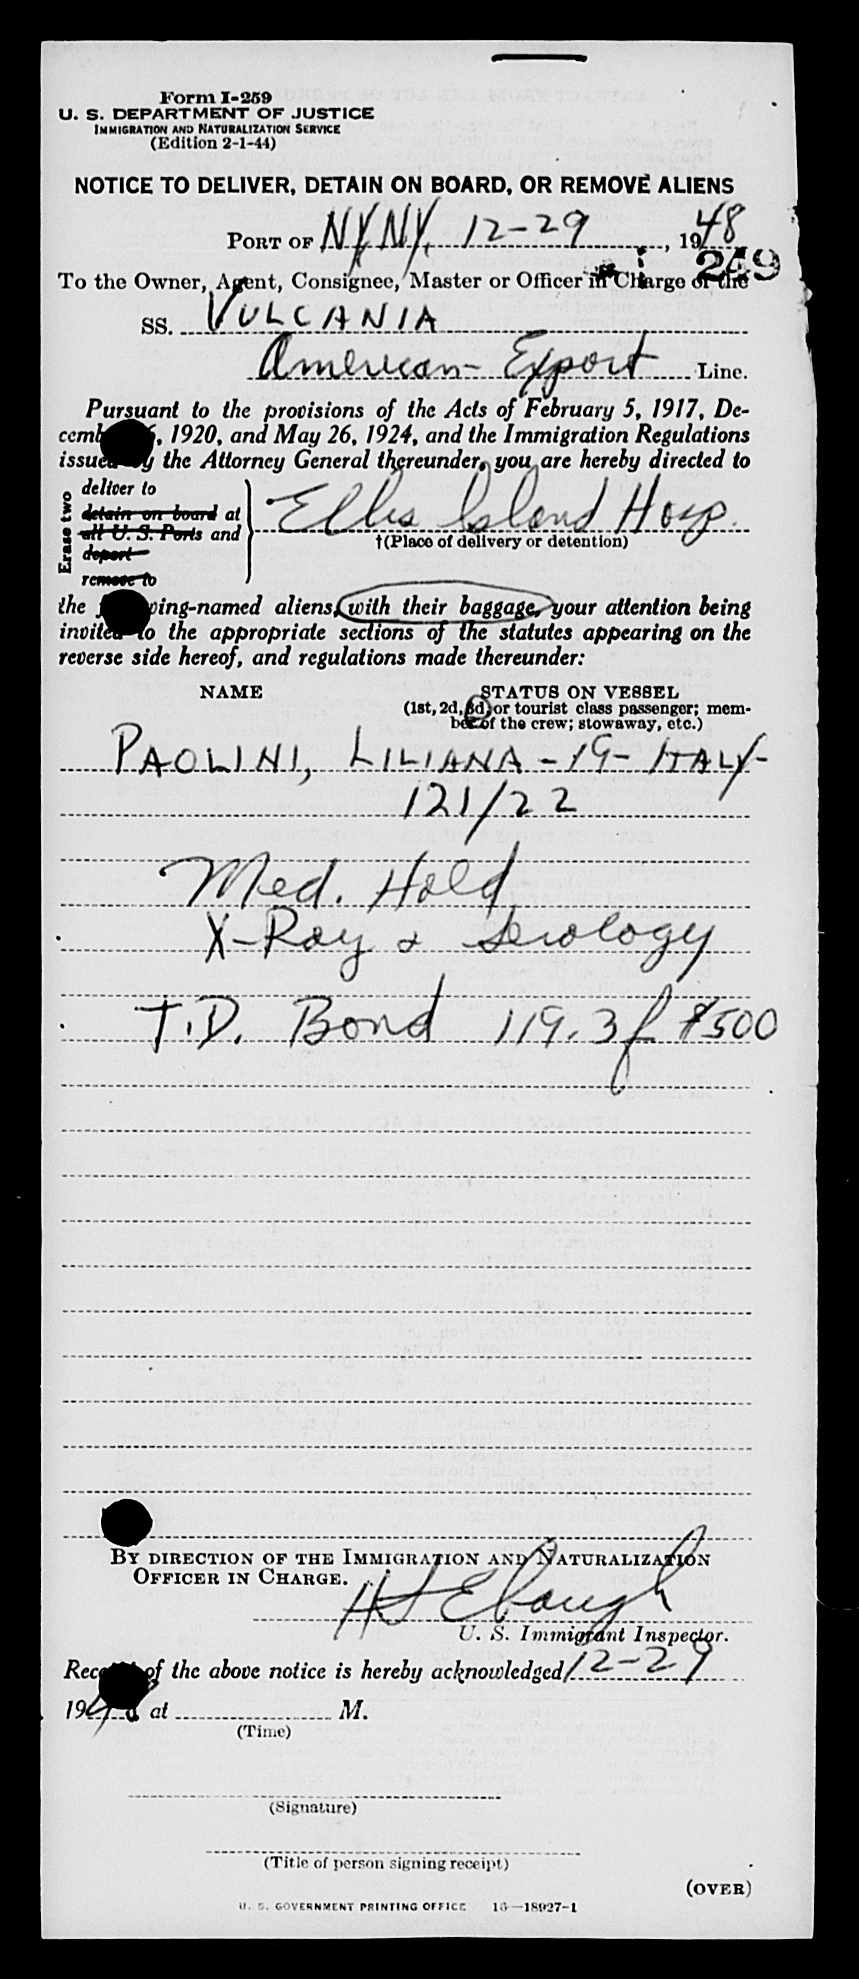 Form I-259
U. S. DEPARTMENT OF JUSTICE
IMMIGRATION AND NATURALIZATION SERVICE
(Edition 2-1-44)
NOTICE TO DELIVER, DETAIN ON BOARD, OR REMOVE ALIENS
PORT OF N.Y. N.Y. 12-29, 1948
249
To the Owner, Agent, Consignee, Master or Officer in Charge of the
SS. VULCANIA
American Export Line.
Pursuant to the provisions of the Acts of February 5, 1917, De-
cemb , 1920, and May 26, 1924, and the Immigration Regulations
issued by the Attorney General thereunder, you are hereby directed to
Erase two
deliver to
detain on board at
all U. S. Ports and
deport
remove to
Ellis Island Hosp.
†(Place of delivery or detention)
the ing-named aliens, with their baggage, your attention being
invited to the appropriate sections of the statutes appearing on the
reverse side hereof, and regulations made thereunder:
NAME STATUS ON VESSEL
(1st, 2d, 3d, or tourist class passenger; mem-
ber of the crew; stowaway, etc.)
PAOLINI, LILIANA - 19 - ITALY -
121/22
Med. Hold
X-Ray & Serology
T.D. Bond 119.3f $500
BY DIRECTION OF THE IMMIGRATION AND NATURALIZATION
OFFICER IN CHARGE.
H S Ebaugh
U. S. Immigrant Inspector.
Rec of the above notice is hereby acknowledged 12-29
1948 at M.
(Time)
(Signature)
(Title of person signing receipt)
(OVER)
U. S. GOVERNMENT PRINTING OFFICE 16—18927-1